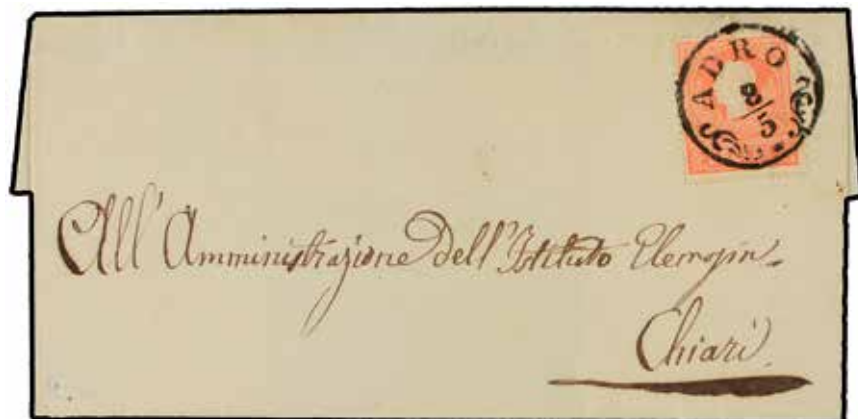 ADRO
8/5
All' Amministrazione dell'Istituto Elemosin.
Chiari